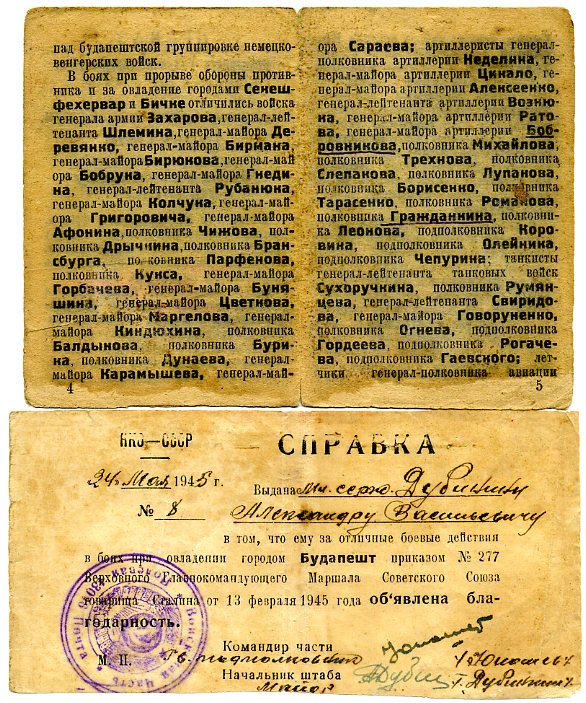 над будапештской группировке немецко-
венгерских войск.
В боях при прорыве обороны против-
ника и за овладение городами Секеш-
фехервар и Бичке отличились войска
генерала армии Захарова, генерал-лей-
тенанта Шлемина, генерал-майора Де-
ревянко, генерал-майора Бирмана,
генерал-майора Бирюкова, генерал-май
ора Бобруна, генерал-майора Гнеди-
на, генерал-лейтенанта Рубанюка,
генерал-майора Колчука, генерал-май-
ора Григоровича, генерал-майора
Афонина, полковника Чижова, пол-
ковника Дрычкина, полковника Бран-
сбурга, полковника Парфенова,
полковника Кукса, генерал-майора
Горбачева, генерал-майора Буня-
шина, генерал-майора Цветкова,
генерал-майора Маргелова, генерал-
майора Киндюхина, полковника
Балдынова, полковника Бури-
на, полковника Дунаева, генерал-
майора Карамышева, генерал-май-
4
ора Сараева; артиллеристы генерал-
полковника артиллерии Неделина, ге-
нерал-майора артиллерии Цикало, ге-
нерал-майора артиллерии Алексеенко,
генерал-лейтенанта артиллерии Возню-
ка, генерал-майора артиллерии Рато-
ва, генерал-майора артиллерии Боб-
ровникова, полковника Михайлова,
полковника Трехнова, полковника
Слепакова, полковника Лупанова,
полковника Борисенко, полковника
Тарасенко, полковника Романова,
полковника Гражданкина, полковни-
ка Леонова, подполковника Коро-
вина, подполковника Олейника,
подполковника Чепурина; танкисты
генерал-лейтенанта танковых войск
Сухоручкина, полковника Румян-
цева, генерал-лейтенанта Свиридо-
ва, генерал-майора Говоруненко,
полковника Огнева, подполковника
Гордеева, подполковника Рогаче-
ва, подполковника Гаевского; лет-
чики генерал-полковника авиации
5
НКО—СССР
СПРАВКА
24 Мая 1945 г.
Выдана мл. серж. Дубинкину
№ 8 Александру Васильевичу
в том, что ему за отличные боевые действия
в боях при овладении городом Будапешт приказом № 277
Верховного Главнокомандующего Маршала Советского Союза
товарища Сталина от 13 февраля 1945 года объявлена бла-
годарность.
Командир части
М. П. Гв. подполковник
Начальник штаба
Майор
Войсковая Часть Полевая Почта